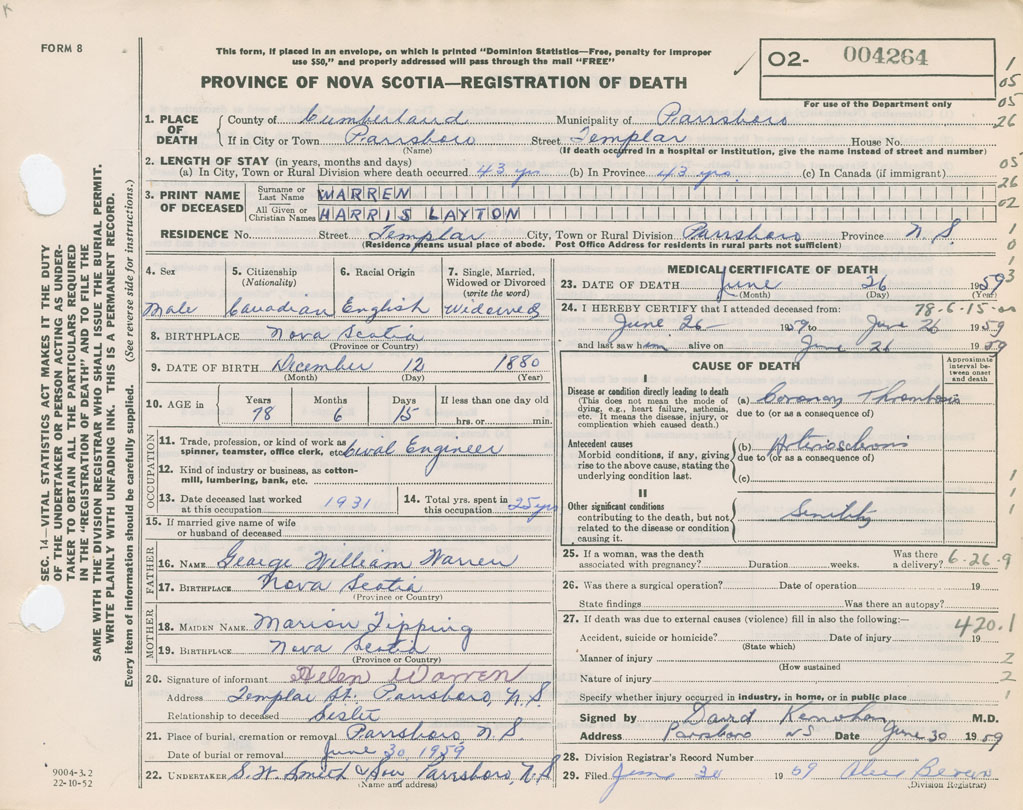 K
FORM 8
This form, if placed in an envelope, on which is printed "Dominion Statistics—Free, penalty for improper
use $50," and properly addressed will pass through the mail "FREE"
PROVINCE OF NOVA SCOTIA—REGISTRATION OF DEATH
O2- 004264
For use of the Department only
1
05
05
26
05
26
02
1
0
1
3
SEC. 14—VITAL STATISTICS ACT MAKES IT THE DUTY
OF THE UNDERTAKER OR PERSON ACTING AS UNDER-
TAKER TO OBTAIN ALL THE PARTICULARS REQUIRED
IN THE "REGISTRATION OF DEATH" AND TO FILE THE
SAME WITH THE DIVISION REGISTRAR WHO SHALL ISSUE THE BURIAL PERMIT.
WRITE PLAINLY WITH UNFADING INK. THIS IS A PERMANENT RECORD.
Every item of information should be carefully supplied. (See reverse side for instructions.)
1. PLACE OF DEATH
County of Cumberland Municipality of Parrsboro
If in City or Town Parrsboro Street Templar House No.
(Name) (If death occurred in a hospital or institution, give the name instead of street and number)
2. LENGTH OF STAY (in years, months and days)
(a) In City, Town or Rural Division where death occurred 43 yrs (b) In Province 43 yrs. (c) In Canada (if immigrant)
3. PRINT NAME OF DECEASED
Surname or Last Name WARREN
All Given or Christian Names HARRIS LAYTON
RESIDENCE No. Street Templar City, Town or Rural Division Parrsboro Province N.S.
(Residence means usual place of abode. Post Office Address for residents in rural parts not sufficient)
4. Sex
Male
5. Citizenship
(Nationality)
Canadian
6. Racial Origin
English
7. Single, Married,
Widowed or Divorced
(write the word)
Widowed
8. BIRTHPLACE Nova Scotia
(Province or Country)
9. DATE OF BIRTH December 12 1880
(Month) (Day) (Year)
10. AGE in
Years Months Days If less than one day old
78 6 15 hrs. or min.
OCCUPATION
11. Trade, profession, or kind of work as
spinner, teamster, office clerk, etc. Civil Engineer
12. Kind of industry or business, as cotton-
mill, lumbering, bank, etc.
13. Date deceased last worked
at this occupation 1931
14. Total yrs. spent in
this occupation 25 yrs
15. If married give name of wife
or husband of deceased
FATHER
16. NAME George William Warren
17. BIRTHPLACE Nova Scotia
(Province or Country)
MOTHER
18. MAIDEN NAME Marion Tipping
19. BIRTHPLACE Nova Scotia
(Province or Country)
20. Signature of informant Helen Warren
Address Templar St. Parrsboro, N.S.
Relationship to deceased Sister
21. Place of burial, cremation or removal Parrsboro N.S.
Date of burial or removal June 30, 1959
22. UNDERTAKER S.W. Smith & Son Parrsboro, N.S
(Name and address)
MEDICAL CERTIFICATE OF DEATH
23. DATE OF DEATH June 26 1959
(Month) (Day) (Year)
24. I HEREBY CERTIFY that I attended deceased from: 78-6-15
June 26 1959 to June 26 1959
and last saw him alive on June 26 1959
CAUSE OF DEATH
Approximate
interval be-
tween onset
and death
I
Disease or condition directly leading to death
(This does not mean the mode of
dying, e.g., heart failure, asthenia,
etc. It means the disease, injury, or
complication which caused death.)
(a) Coronary Thrombosis
due to (or as a consequence of)
Antecedent causes
Morbid conditions, if any, giving
rise to the above cause, stating the
underlying condition last.
(b) Arteriosclerosis
due to (or as a consequence of)
(c)
II
Other significant conditions
contributing to the death, but not
related to the disease or condition
causing it.
Senility
1
1
1
25. If a woman, was the death
associated with pregnancy? Duration weeks. Was there
a delivery? 6-26-9
26. Was there a surgical operation? Date of operation 19
State findings Was there an autopsy?
27. If death was due to external causes (violence) fill in also the following:— 420.1
Accident, suicide or homicide? Date of injury 19
(State which)
Manner of injury 2
(How sustained
Nature of injury 2
Specify whether injury occurred in industry, in home, or in public place 1
Signed by David Kernohan M.D.
Address Parrsboro NS Date June 30 1959
28. Division Registrar's Record Number
29. Filed June 30 1959
(Division Registrar)
9004-3.2
22-10-52